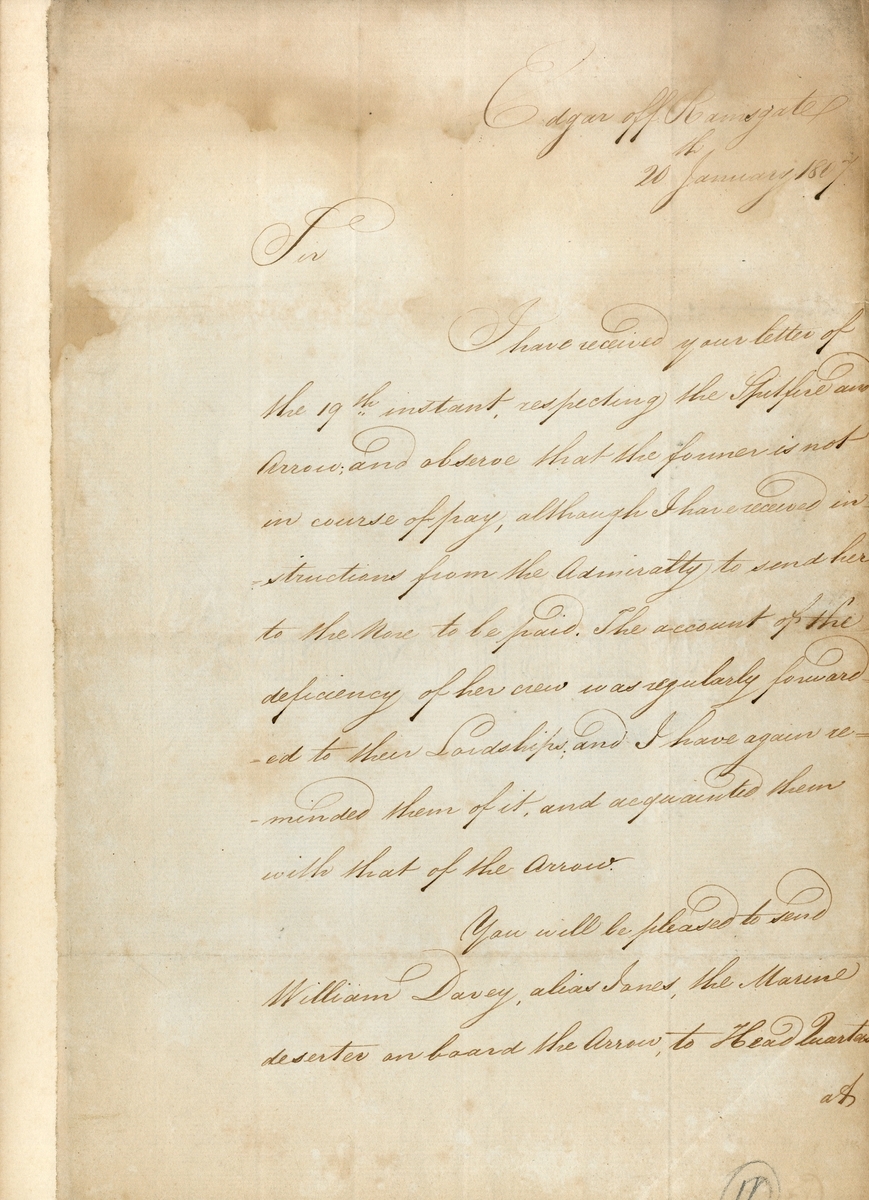 Edgar off Ramsgate
20th January 1807
Sir
I have received your letter of
the 19th instant, respecting the Spitfire and
Arrow; and observe that the former is not
in course of pay, although I have received in-
-structions from the Admiralty to send her
to the Nore to be paid. The account of the
deficiency of her crew was regularly forward-
-ed to their Lordships; and I have again re-
-minded them of it, and acquainted them
with that of the Arrow.
You will be pleased to send
William Davey, alias Jones, the Marine
deserter on board the Arrow, to Head Quarters
at